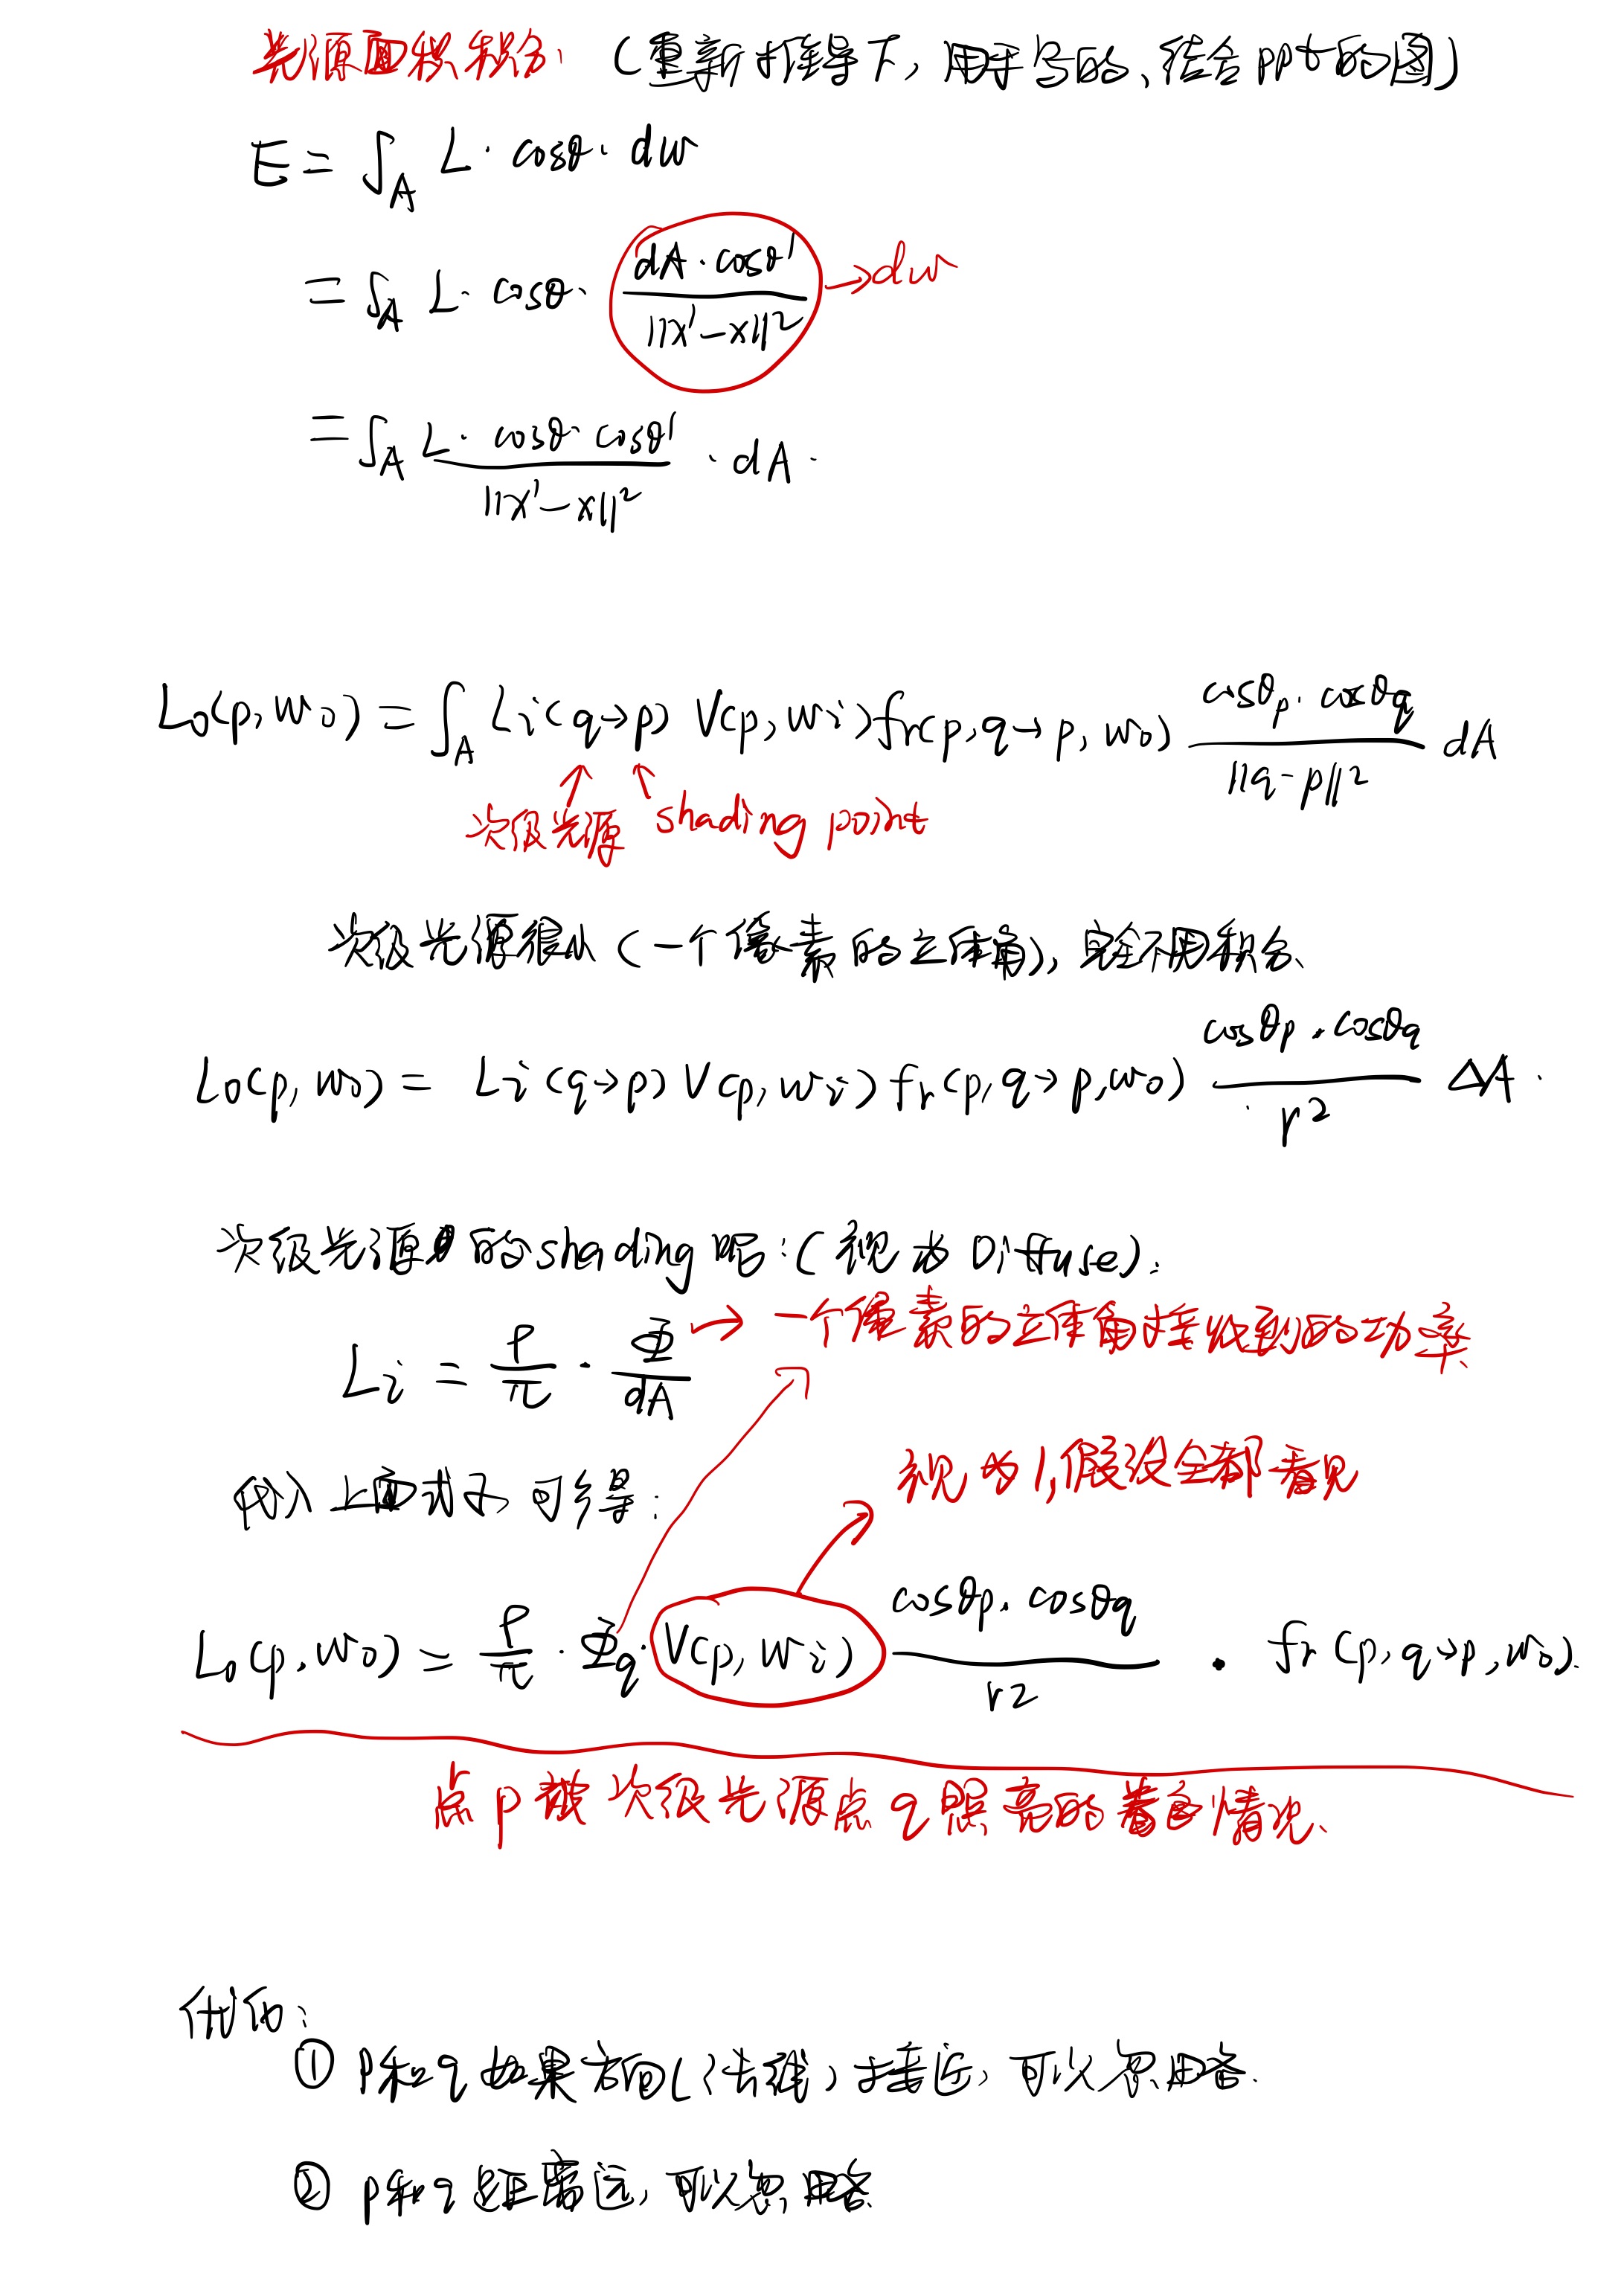 光源面积积分. (重新推导下, 用手写的、结合ppt的图)
E = ∫_A L · cosθ · dw
= ∫_A L · cosθ · (dA · cosθ') / ||x'-x||² → dw
= ∫_A (L · cosθ · cosθ') / ||x'-x||² · dA ·
Lo(p, wo) = ∫_A Li(q→p) V(p, wi) fr(p, q→p, wo) (cosθp · cosθq) / ||q-p||² dA
次级光源 shading point
次级光源很小 (一个像素的立体角), 完全不用积分、
Lo(p, wo) = Li(q→p) V(p, wi) fr(p, q→p, wo) (cosθp · cosθq) / r² ΔA ·
次级光源的shading呢: (视为Diffuse).
Li = ρ/π · Φ/dA → 一个像素的立体角接收到的功率、
视为1, 假设全都看见
代入上面式子, 可得:
Lo(p, wo) = ρ/π · Φq · V(p, wi) (cosθp · cosθq) / r² · fr(p, q→p, wo).
点p被次级光源点q照亮的着色情况、
优化:
① p和q如果方向(法线)接近, 可以忽略.
② p和q距离远, 可以忽略